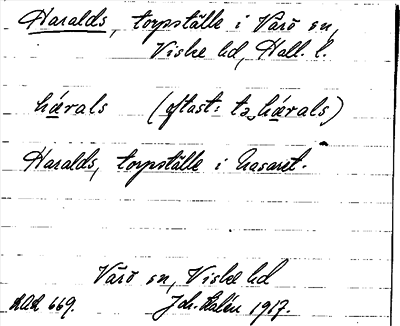 Haralds, torpställe i Värö sn,
Viske hd, Hall. l.
hærals (oftast: tə hærals)
Haralds, torpställe i Nasaret.
Värö sn, Viske hd
669. Joh. Kalén 1917.